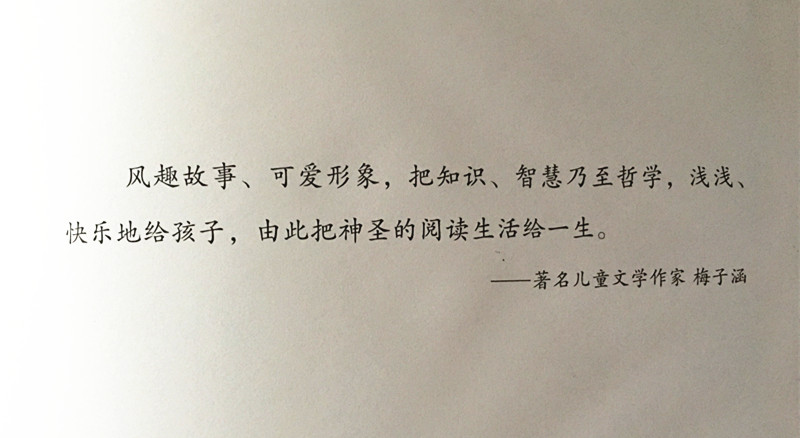 风趣故事、可爱形象，把知识、智慧乃至哲学，浅浅、
快乐地给孩子，由此把神圣的阅读生活给一生。
——著名儿童文学作家 梅子涵